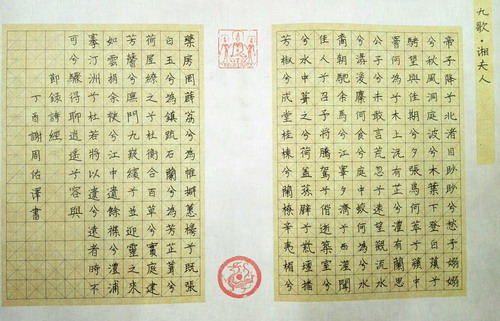 九歌·湘夫人
帝子降兮北渚目眇眇兮愁予嫋嫋
兮秋風洞庭波兮木葉下登白薠兮
騁望與佳期兮夕張鳥何萃兮蘋中
罾何為兮木上沅有芷兮澧有蘭思
公子兮未敢言荒忽兮遠望觀流水
兮潺湲麋何食兮庭中蛟何為兮水
裔朝馳余馬兮江皋夕濟兮西澨聞
佳人兮召予將騰駕兮偕逝築室
兮水中葺之兮荷蓋蓀壁兮紫壇播
芳椒兮成堂桂棟兮蘭橑辛夷楣兮
藥房罔薜荔兮為帷擗蕙櫋兮既張
白玉兮為鎮疏石蘭兮為芳芷葺兮
荷屋繚之兮杜衡合百草兮實庭建
芳馨兮廡門九嶷繽兮並迎靈之來
如雲捐余袂兮江中遺余褋兮澧浦
搴汀洲兮杜若將以遺兮遠者時不
可兮驟得聊逍遙兮容與
節錄詩經
丁酉謝周佑澤書